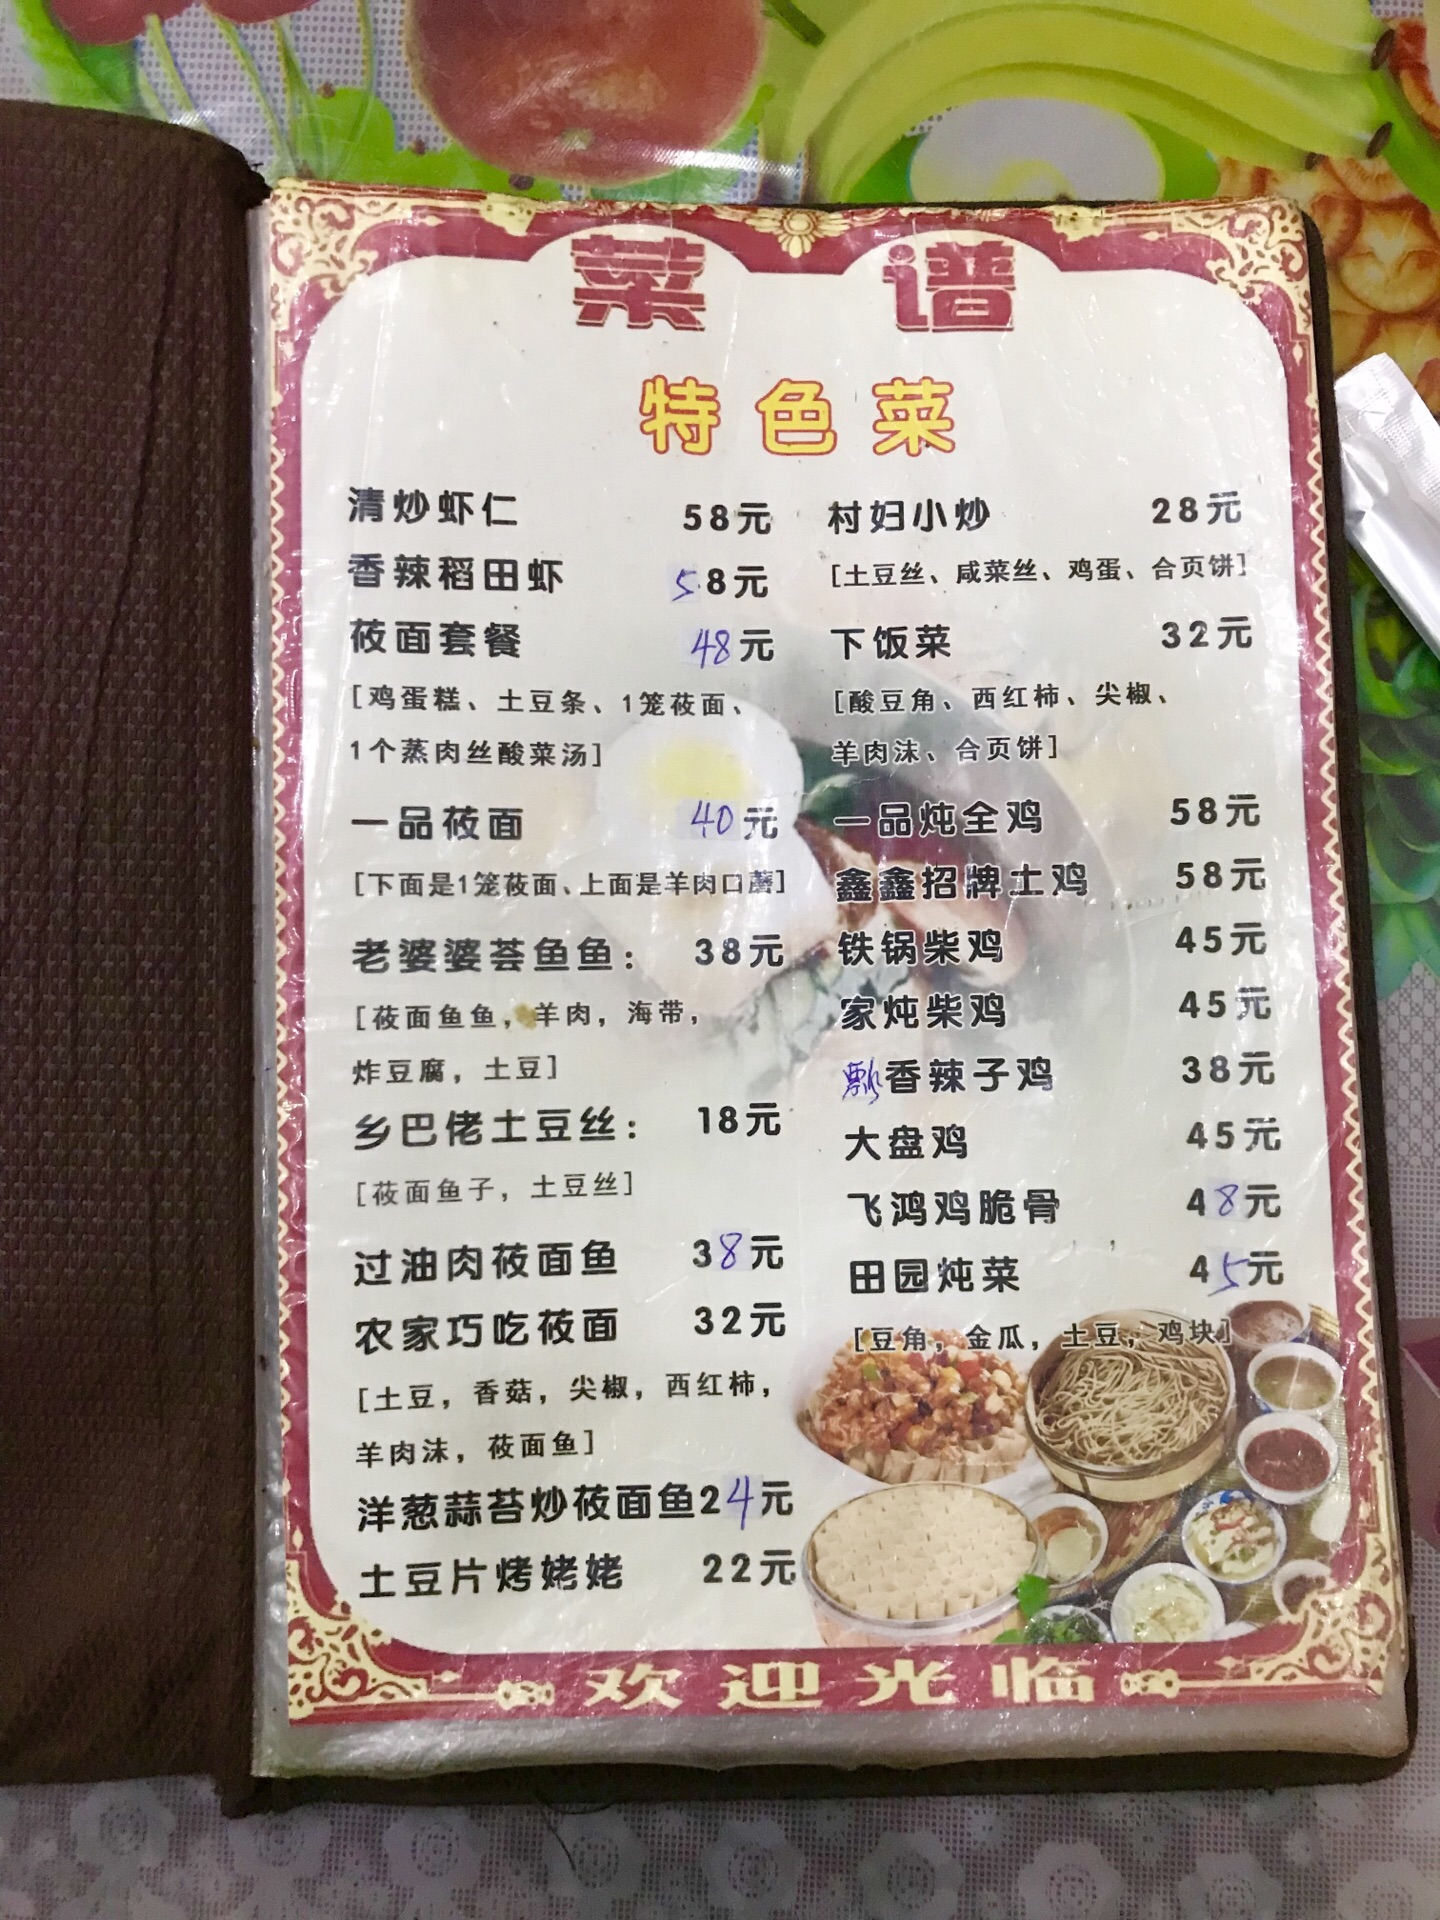 菜 谱
特色菜
清炒虾仁 58元
香辣稻田虾 58元
莜面套餐 48元
[鸡蛋糕、土豆条、1笼莜面、
1个蒸肉丝酸菜汤]
一品莜面 40元
[下面是1笼莜面、上面是羊肉口蘑]
老婆婆荟鱼鱼： 38元
[莜面鱼鱼，羊肉，海带，
炸豆腐，土豆]
乡巴佬土豆丝： 18元
[莜面鱼子，土豆丝]
过油肉莜面鱼 38元
农家巧吃莜面 32元
[土豆，香菇，尖椒，西红柿，
羊肉沫，莜面鱼]
洋葱蒜苔炒莜面鱼24元
土豆片烤姥姥 22元
村妇小炒 28元
[土豆丝、咸菜丝、鸡蛋、合页饼]
下饭菜 32元
[酸豆角、西红柿、尖椒、
羊肉沫、合页饼]
一品炖全鸡 58元
鑫鑫招牌土鸡 58元
铁锅柴鸡 45元
家炖柴鸡 45元
飘香辣子鸡 38元
大盘鸡 45元
飞鸿鸡脆骨 48元
田园炖菜 45元
[豆角，金瓜，土豆，鸡块]
欢迎光临